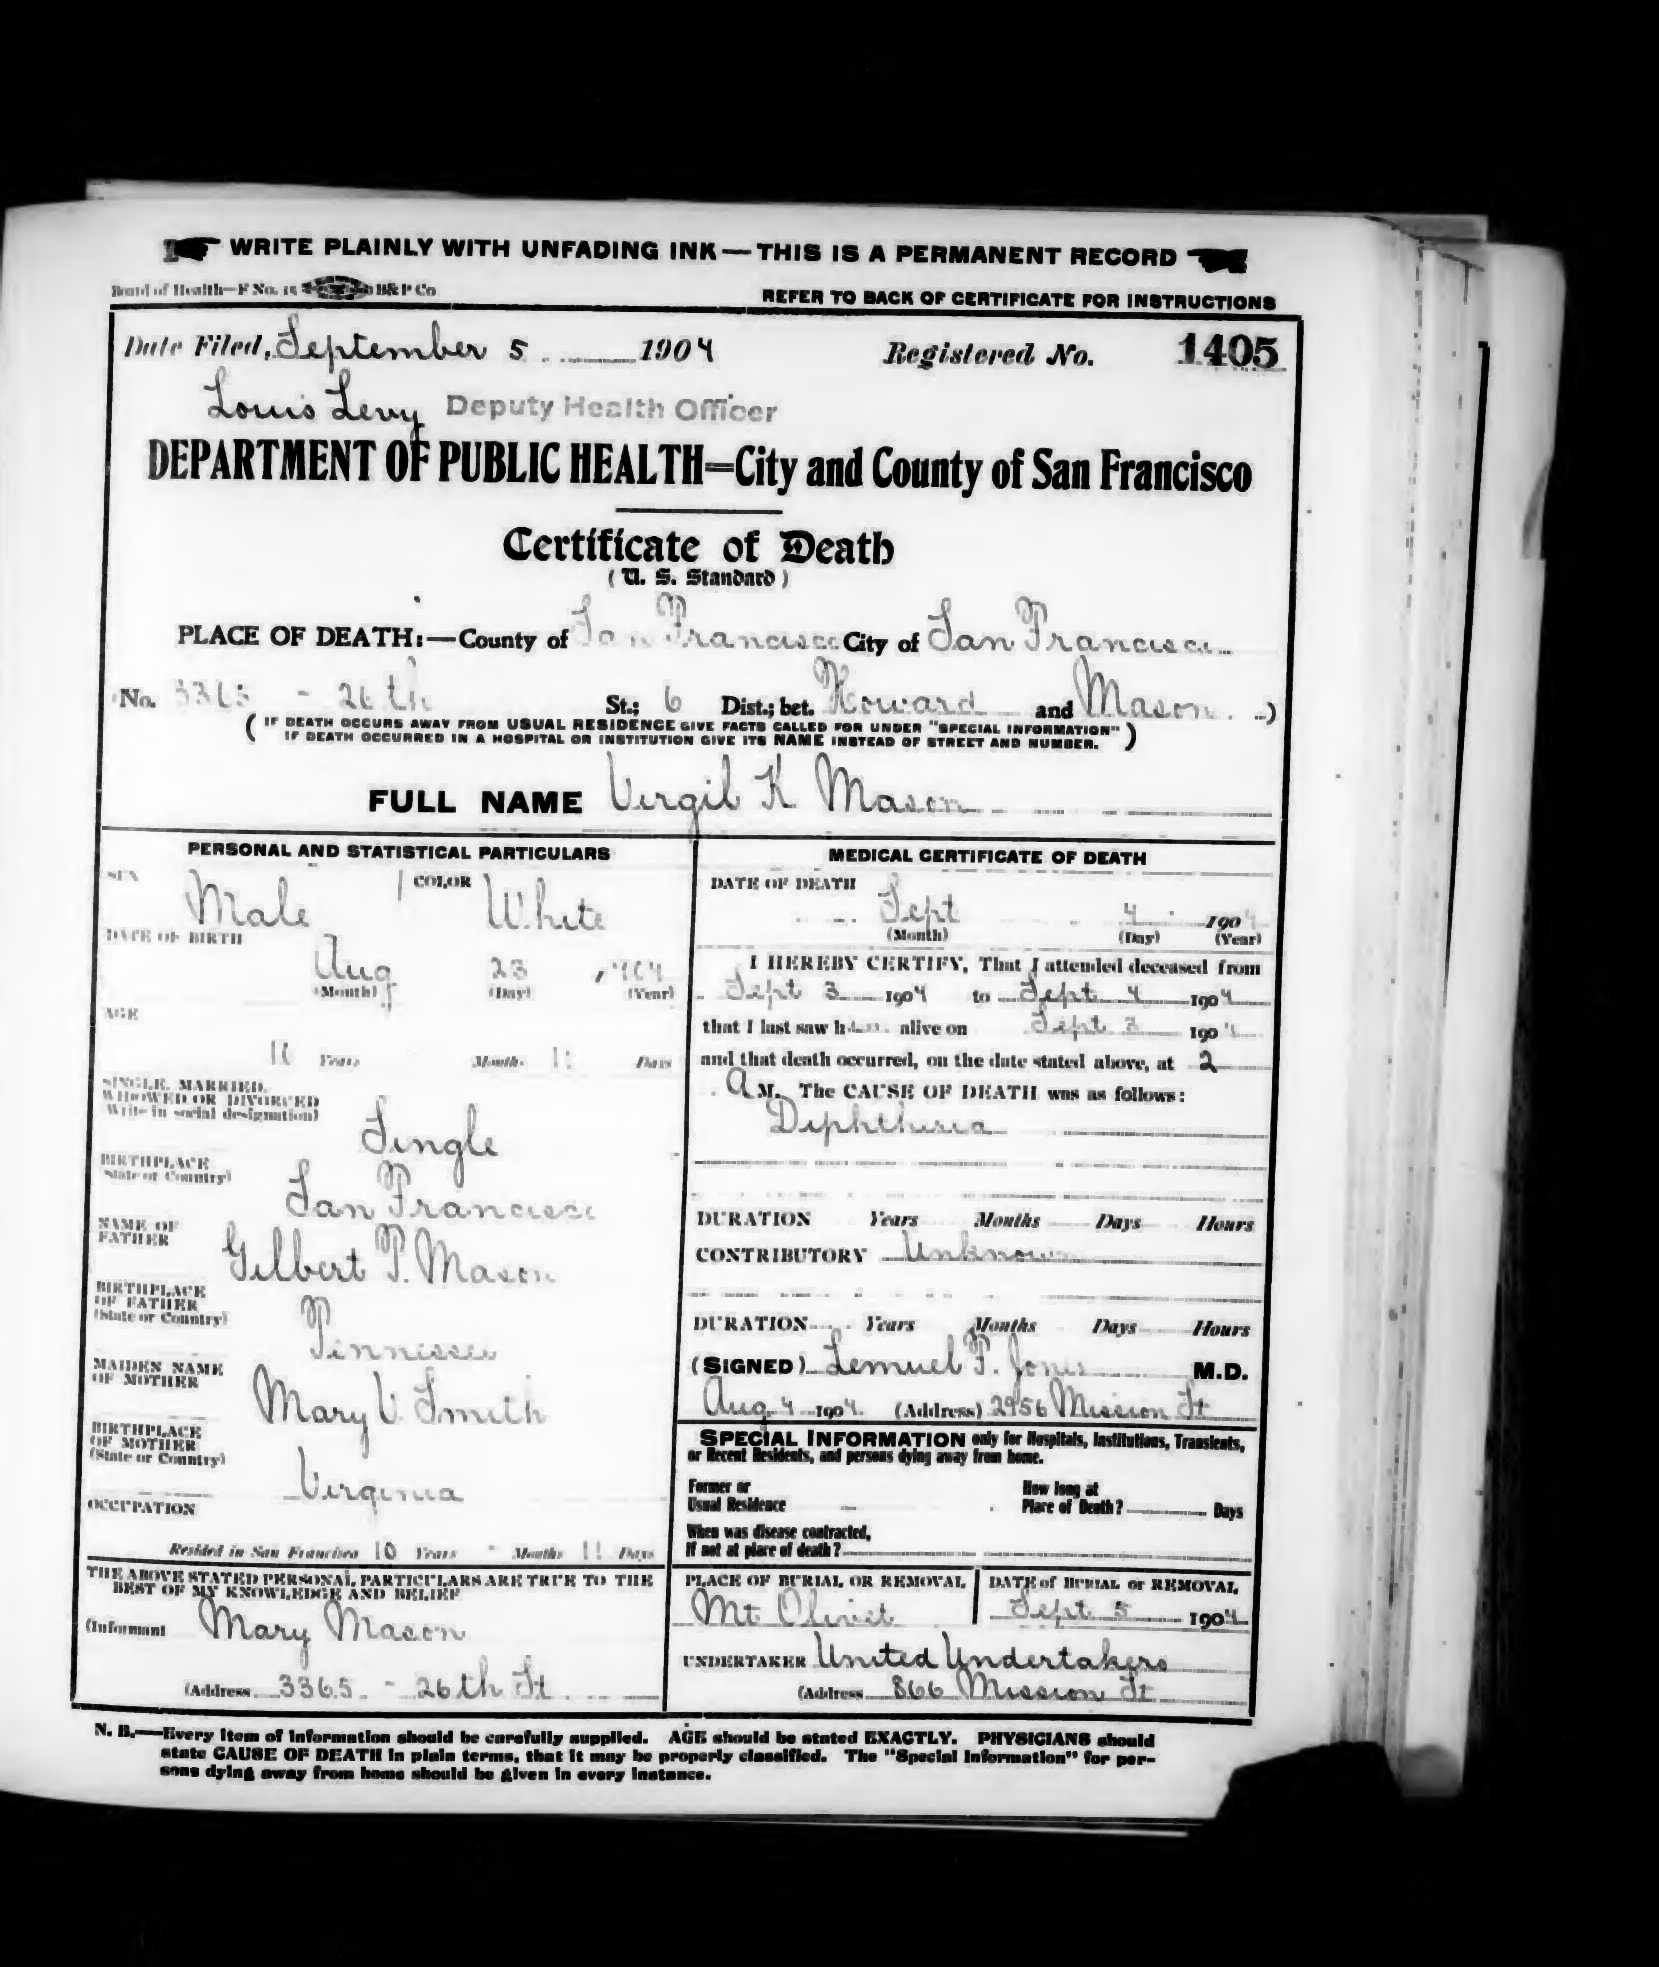 WRITE PLAINLY WITH UNFADING INK — THIS IS A PERMANENT RECORD
Board of Health—F No. 15 B&P Co
REFER TO BACK OF CERTIFICATE FOR INSTRUCTIONS
Date Filed, September 5 1904 Registered No. 1405
Louis Levy Deputy Health Officer
DEPARTMENT OF PUBLIC HEALTH=City and County of San Francisco
Certificate of Death
(U. S. Standard)
PLACE OF DEATH:—County of San Francisco City of San Francisco
No. 3365 - 26th St.; 6 Dist.; bet. Howard and Mason )
( IF DEATH OCCURS AWAY FROM USUAL RESIDENCE GIVE FACTS CALLED FOR UNDER "SPECIAL INFORMATION" )
IF DEATH OCCURRED IN A HOSPITAL OR INSTITUTION GIVE ITS NAME INSTEAD OF STREET AND NUMBER.
FULL NAME Virgil K Mason
PERSONAL AND STATISTICAL PARTICULARS
SEX Male COLOR White
DATE OF BIRTH
Aug 23
(Month) (Day) (Year)
AGE
Years Months 11 Days
SINGLE, MARRIED,
WIDOWED OR DIVORCED
Write in social designation)
Single
BIRTHPLACE
State or Country)
San Francisco
NAME OF
FATHER
Gilbert P. Mason
BIRTHPLACE
OF FATHER
(State or Country)
Tennessee
MAIDEN NAME
OF MOTHER
Mary V. Smith
BIRTHPLACE
OF MOTHER
(State or Country)
Virginia
OCCUPATION
Resided in San Francisco 10 Years - Months 11 Days
THE ABOVE STATED PERSONAL PARTICULARS ARE TRUE TO THE
BEST OF MY KNOWLEDGE AND BELIEF
(Informant Mary Mason
(Address 3365 - 26th St
MEDICAL CERTIFICATE OF DEATH
DATE OF DEATH
Sept 4 1904
(Month) (Day) (Year)
I HEREBY CERTIFY, That I attended deceased from
Sept 3 1904 to Sept 4 1904
that I last saw him alive on Sept 3 1904
and that death occurred, on the date stated above, at 2
A M. The CAUSE OF DEATH was as follows:
Diphtheria
DURATION Years Months Days Hours
CONTRIBUTORY Unknown
DURATION Years Months Days Hours
(SIGNED) Lemuel P. Jones M.D.
Aug 4 1904 (Address) 2956 Mission St
SPECIAL INFORMATION only for Hospitals, Institutions, Transients,
or Recent Residents, and persons dying away from home.
Former or
Usual Residence
How long at
Place of Death? Days
When was disease contracted,
If not at place of death?
PLACE OF BURIAL OR REMOVAL
Mt Olivet
DATE of BURIAL or REMOVAL
Sept 5 1904
UNDERTAKER United Undertakers
(Address 866 Mission St
N. B.—Every item of information should be carefully supplied. AGE should be stated EXACTLY. PHYSICIANS should
state CAUSE OF DEATH in plain terms, that it may be properly classified. The "Special Information" for per-
sons dying away from home should be given in every instance.